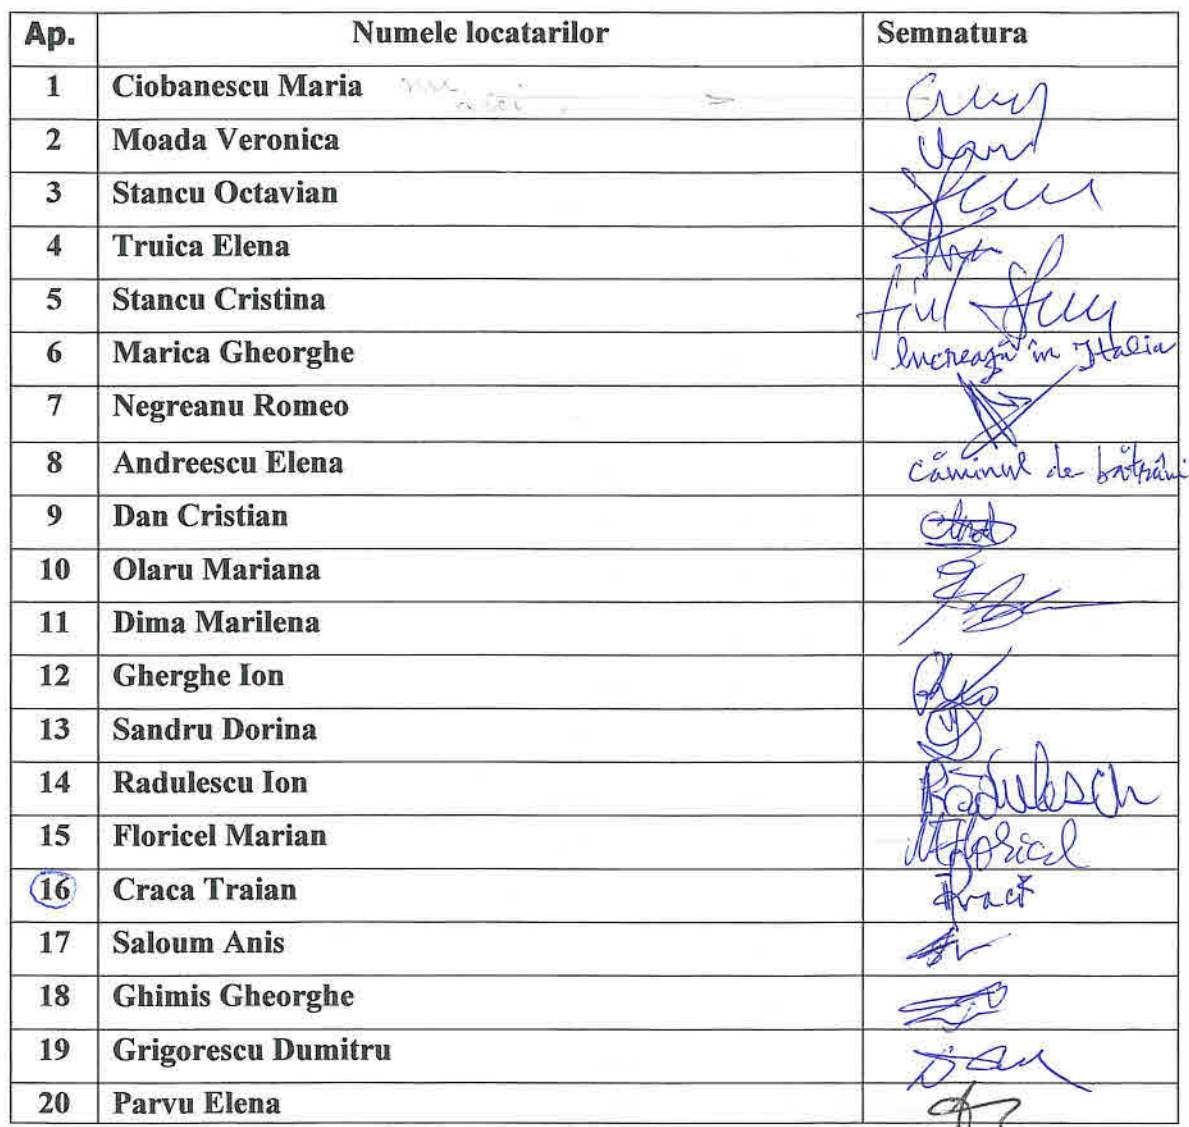 Ap. Numele locatarilor Semnatura
1 Ciobanescu Maria
2 Moada Veronica
3 Stancu Octavian
4 Truica Elena
5 Stancu Cristina
6 Marica Gheorghe lucrează în Italia
7 Negreanu Romeo
8 Andreescu Elena căminul de bătrâni
9 Dan Cristian
10 Olaru Mariana
11 Dima Marilena
12 Gherghe Ion
13 Sandru Dorina
14 Radulescu Ion
15 Floricel Marian
16 Craca Traian
17 Saloum Anis
18 Ghimis Gheorghe
19 Grigorescu Dumitru
20 Parvu Elena